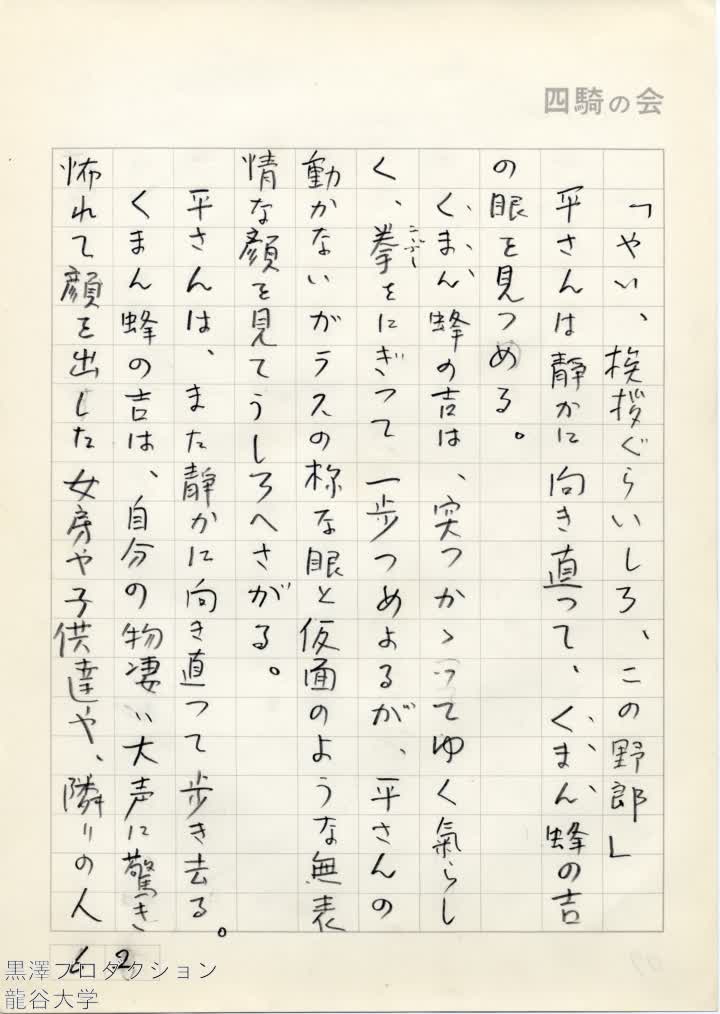 四騎の会
「やい、挨拶ぐらいしろ、この野郎」
平さんは静かに向き直つて、くまん蜂の吉
の眼を見つめる。
くまん蜂の吉は、突つかゝつてゆく氣らし
く、拳をにぎつて一歩つめよるが、平さんの
こぶし
動かないガラスの様な眼と仮面のような無表
情な顔を見てうしろへさがる。
平さんは、また静かに向き直つて歩き去る。
くまん蜂の吉は、自分の物凄い大声に驚き
怖れて顔を出した女房や子供達や、隣りの人
2
黒澤プロダクション
龍谷大学